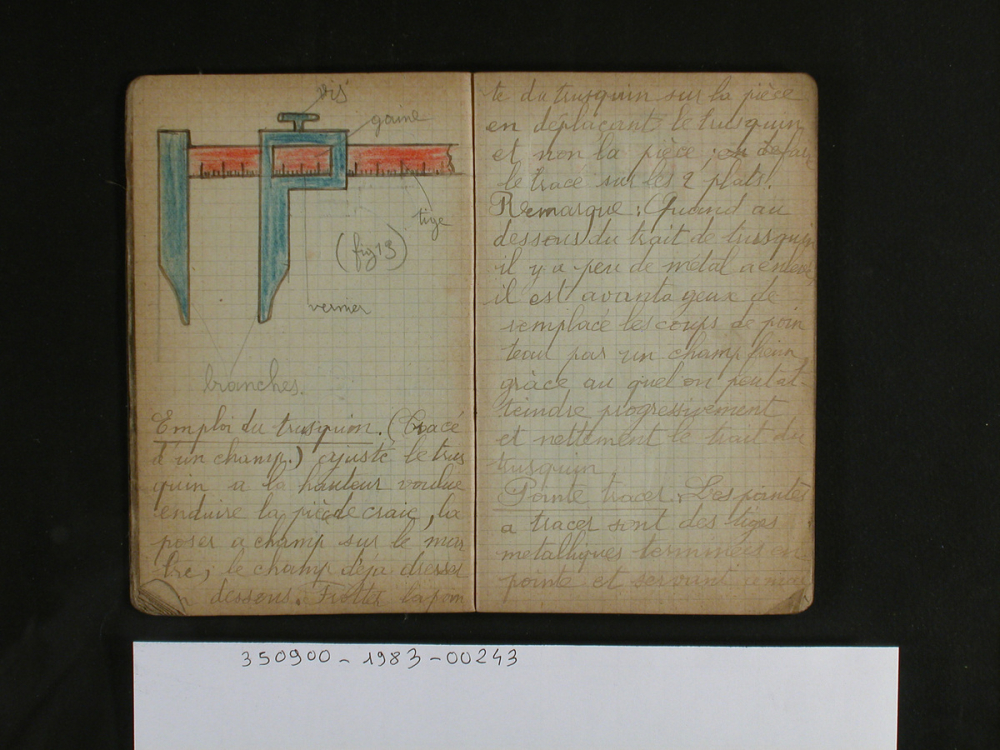 vis
gaine
tige
(fig 13)
vernier
branches.
Emploi du trusquin. (Tracé
d'un champ.) ajusté le trus
quin a la hauteur voulue
enduire la pièce de craie, la
poser a champ sur le mar
bre, le champ déja dresser
dessous. Frotter la poin
te du trusquin sur la pièce
en déplaçant le trusquin
et non la pièce;
le tracé sur les 2 plats.
Remarque: Quand au
dessous du trait de trusquin
il y a peu de métal a enlevé
il est avantageux de
remplacé les coups de poin
teau par un champ
grâce au quel on peut at-
teindre progressivement
et nettement le trait du
trusquin.
Pointe tracer. Les pointes
a tracer sont des tiges
metalliques terminées en
pointe et servant
350900-1983-00243